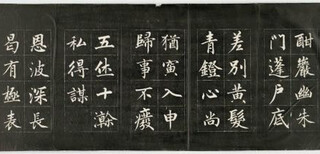 酣巖幽朱
門蓬戶底
差別黃髮
青鐙心尚
猶寅入申
歸事不癈
五休十澣
私得謀
恩波深長
曷有極表